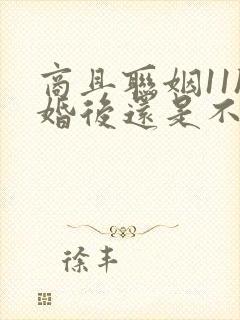 商且聯姻11
婚後還是不
徐丰